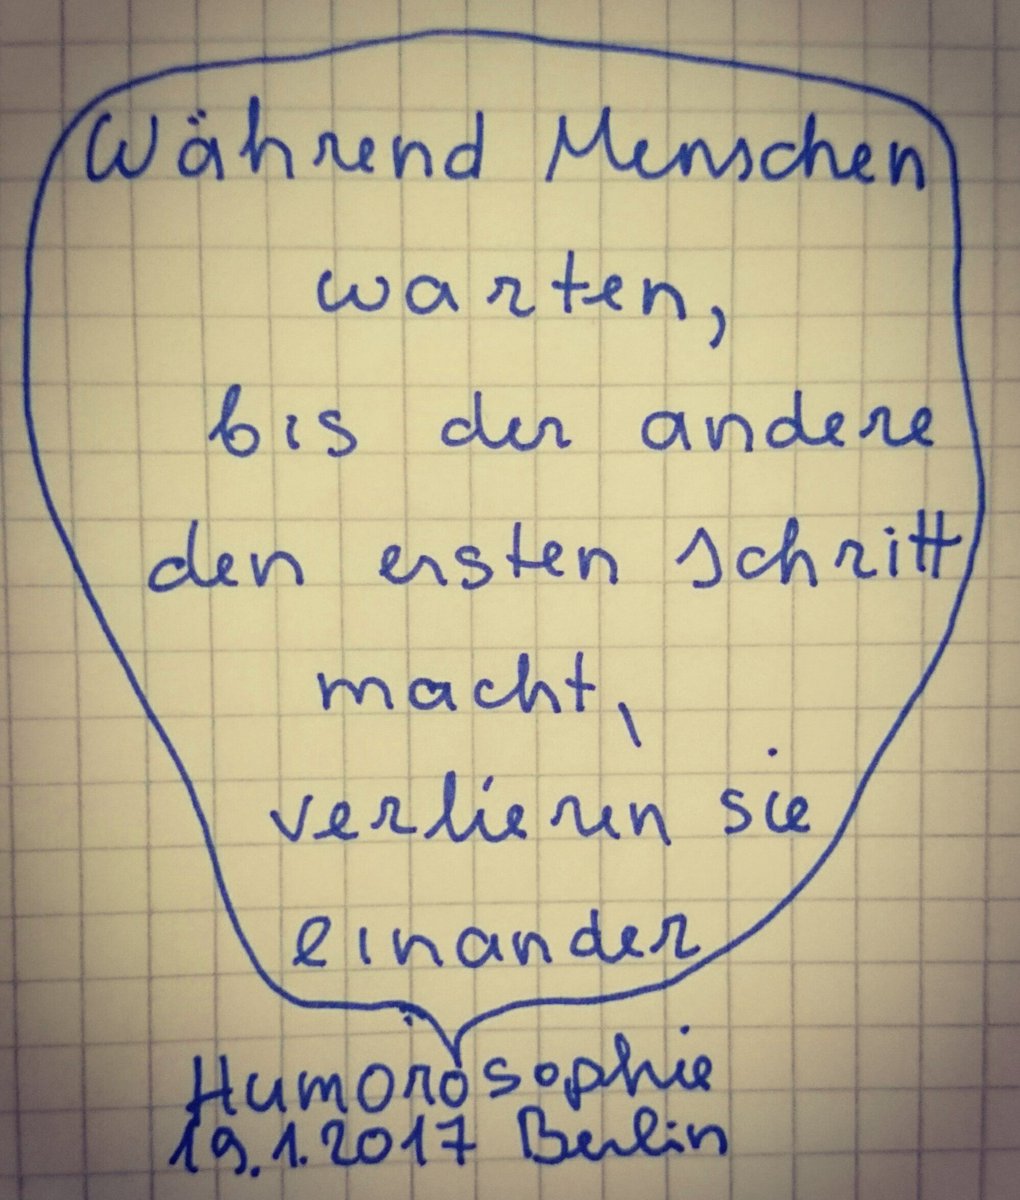 Während Menschen
warten,
bis der andere
den ersten Schritt
macht,
verlieren sie
einander
Humorosophie
19.1.2017 Berlin